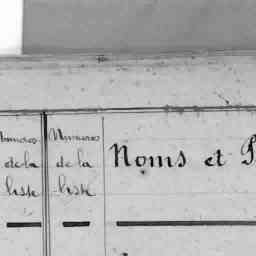 Numéros
de la
liste
Numéros
de la
liste
Noms et P